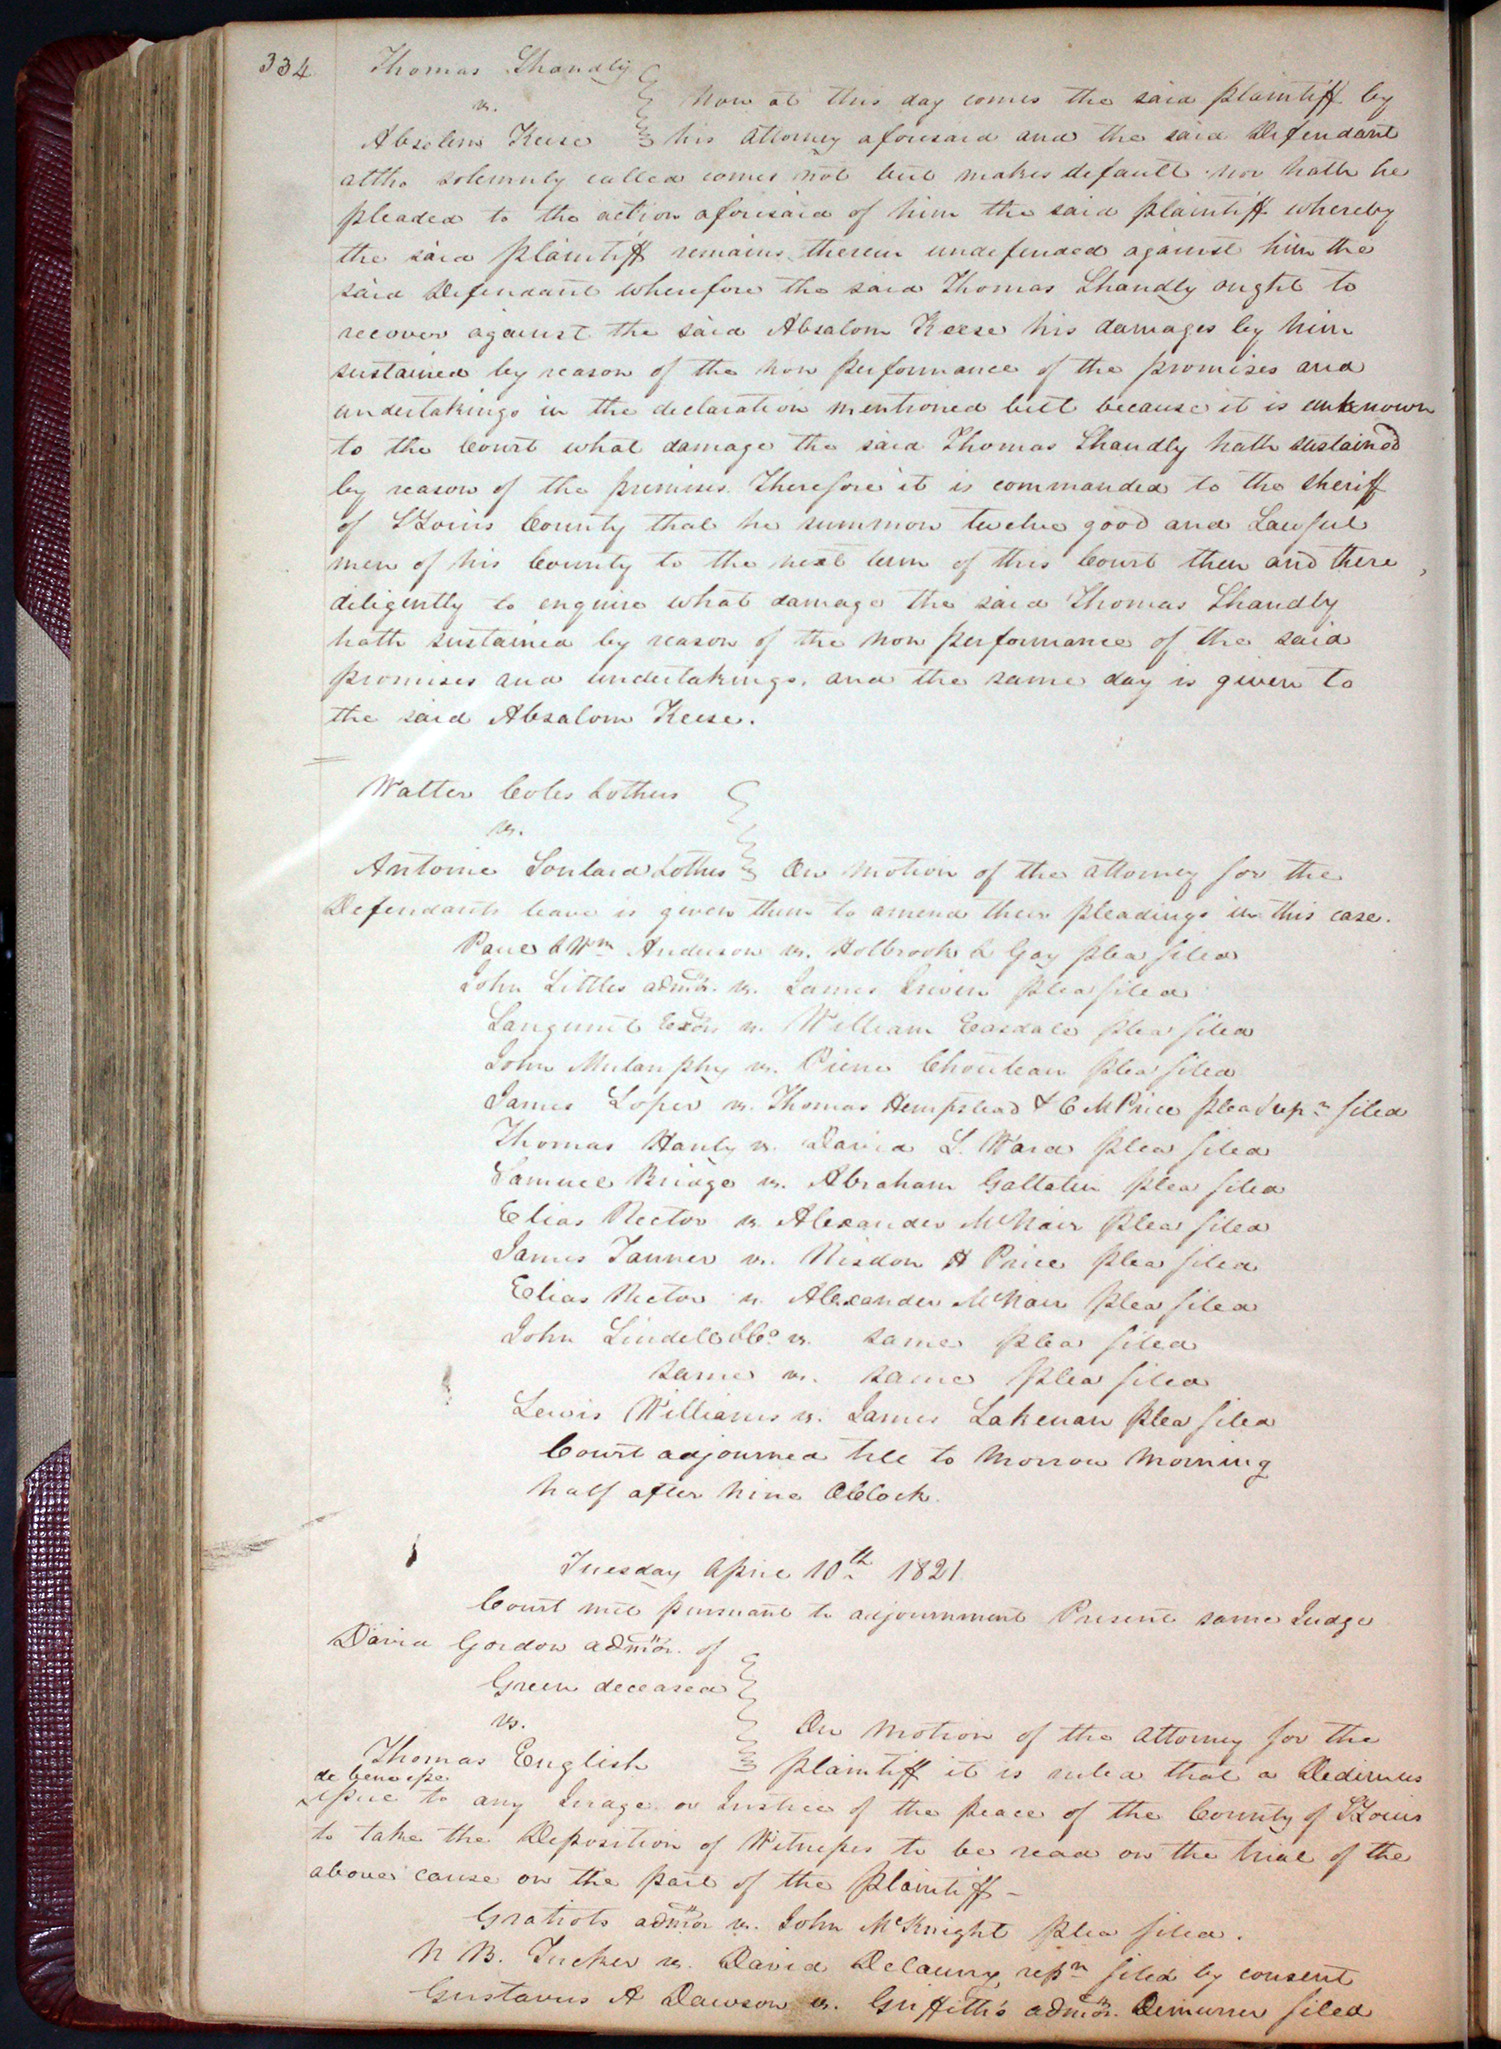 334
Thomas Shandly
vs.
Now at this day comes the said plaintiff by
Absolem Keese his attorney aforesaid and the said Defendant
altho solemnly called comes not but makes default nor hath he
pleaded to the action aforesaid of him the said plaintiff whereby
the said plaintiff remains therein undefended against him the
said Defendant wherefore the said Thomas Shandly ought to
recover against the said Absalom Keese his damages by him
sustained by reason of the non performance of the promises and
undertakings in the declaration mentioned but because it is unknown
to the Court what damage the said Thomas Shandly hath sustained
by reason of the premises. Therefore it is commanded to the sheriff
of St Louis County that he summon twelve good and Lawful
men of his County to the next term of this Court then and there,
diligently to enquire what damage the said Thomas Shandly
hath sustained by reason of the non performance of the said
promises and undertakings. and the same day is given to
the said Absalom Keese.
Walter Coles & others
vs.
Antoine Soulard & others On motion of the attorney for the
Defendants leave is given them to amend their pleadings in this case.
Paul & Wm Anderson vs. Holbrook & Gay plea filed
John Littles admor. vs. James Irwin plea filed
Exors vs. William Easdale plea filed
John Mulanphy vs. Pierre Chouteau plea filed
James Loper vs. Thomas Hempstead & C M Price plea & repn filed
Thomas Hanly vs. David L. Ward plea filed
Samuel Bridge vs. Abraham Gallatin plea filed
Elias Rector vs Alexander McNair plea filed
James Tanner vs. Risdon H Price plea filed
Elias Rector vs. Alexander McNair plea filed
John Lindell & Co. vs. same plea filed
same vs. same plea filed
Lewis Williams vs. James Lakenan plea filed
Court adjourned till to Morrow Morning
half after nine OClock.
Tuesday April 10th 1821
Court met pursuant to adjournment Present same Judge
David Gordon admor. of
Green deceased
vs.
On motion of the attorney for the
Thomas English plaintiff it is ruled that a Dedimus
de bene esse
issue to any Judge or Justice of the peace of the County of St Louis
to take the Deposition of Witnesses to be read on the trial of the
above cause on the part of the plaintiff –
Gratiots admor vs. John McKnight plea filed.
N B. Tucker vs. David Delauny repn filed by consent
Gustavus A Dawson vs. Griffith's admor. Demurrer filed